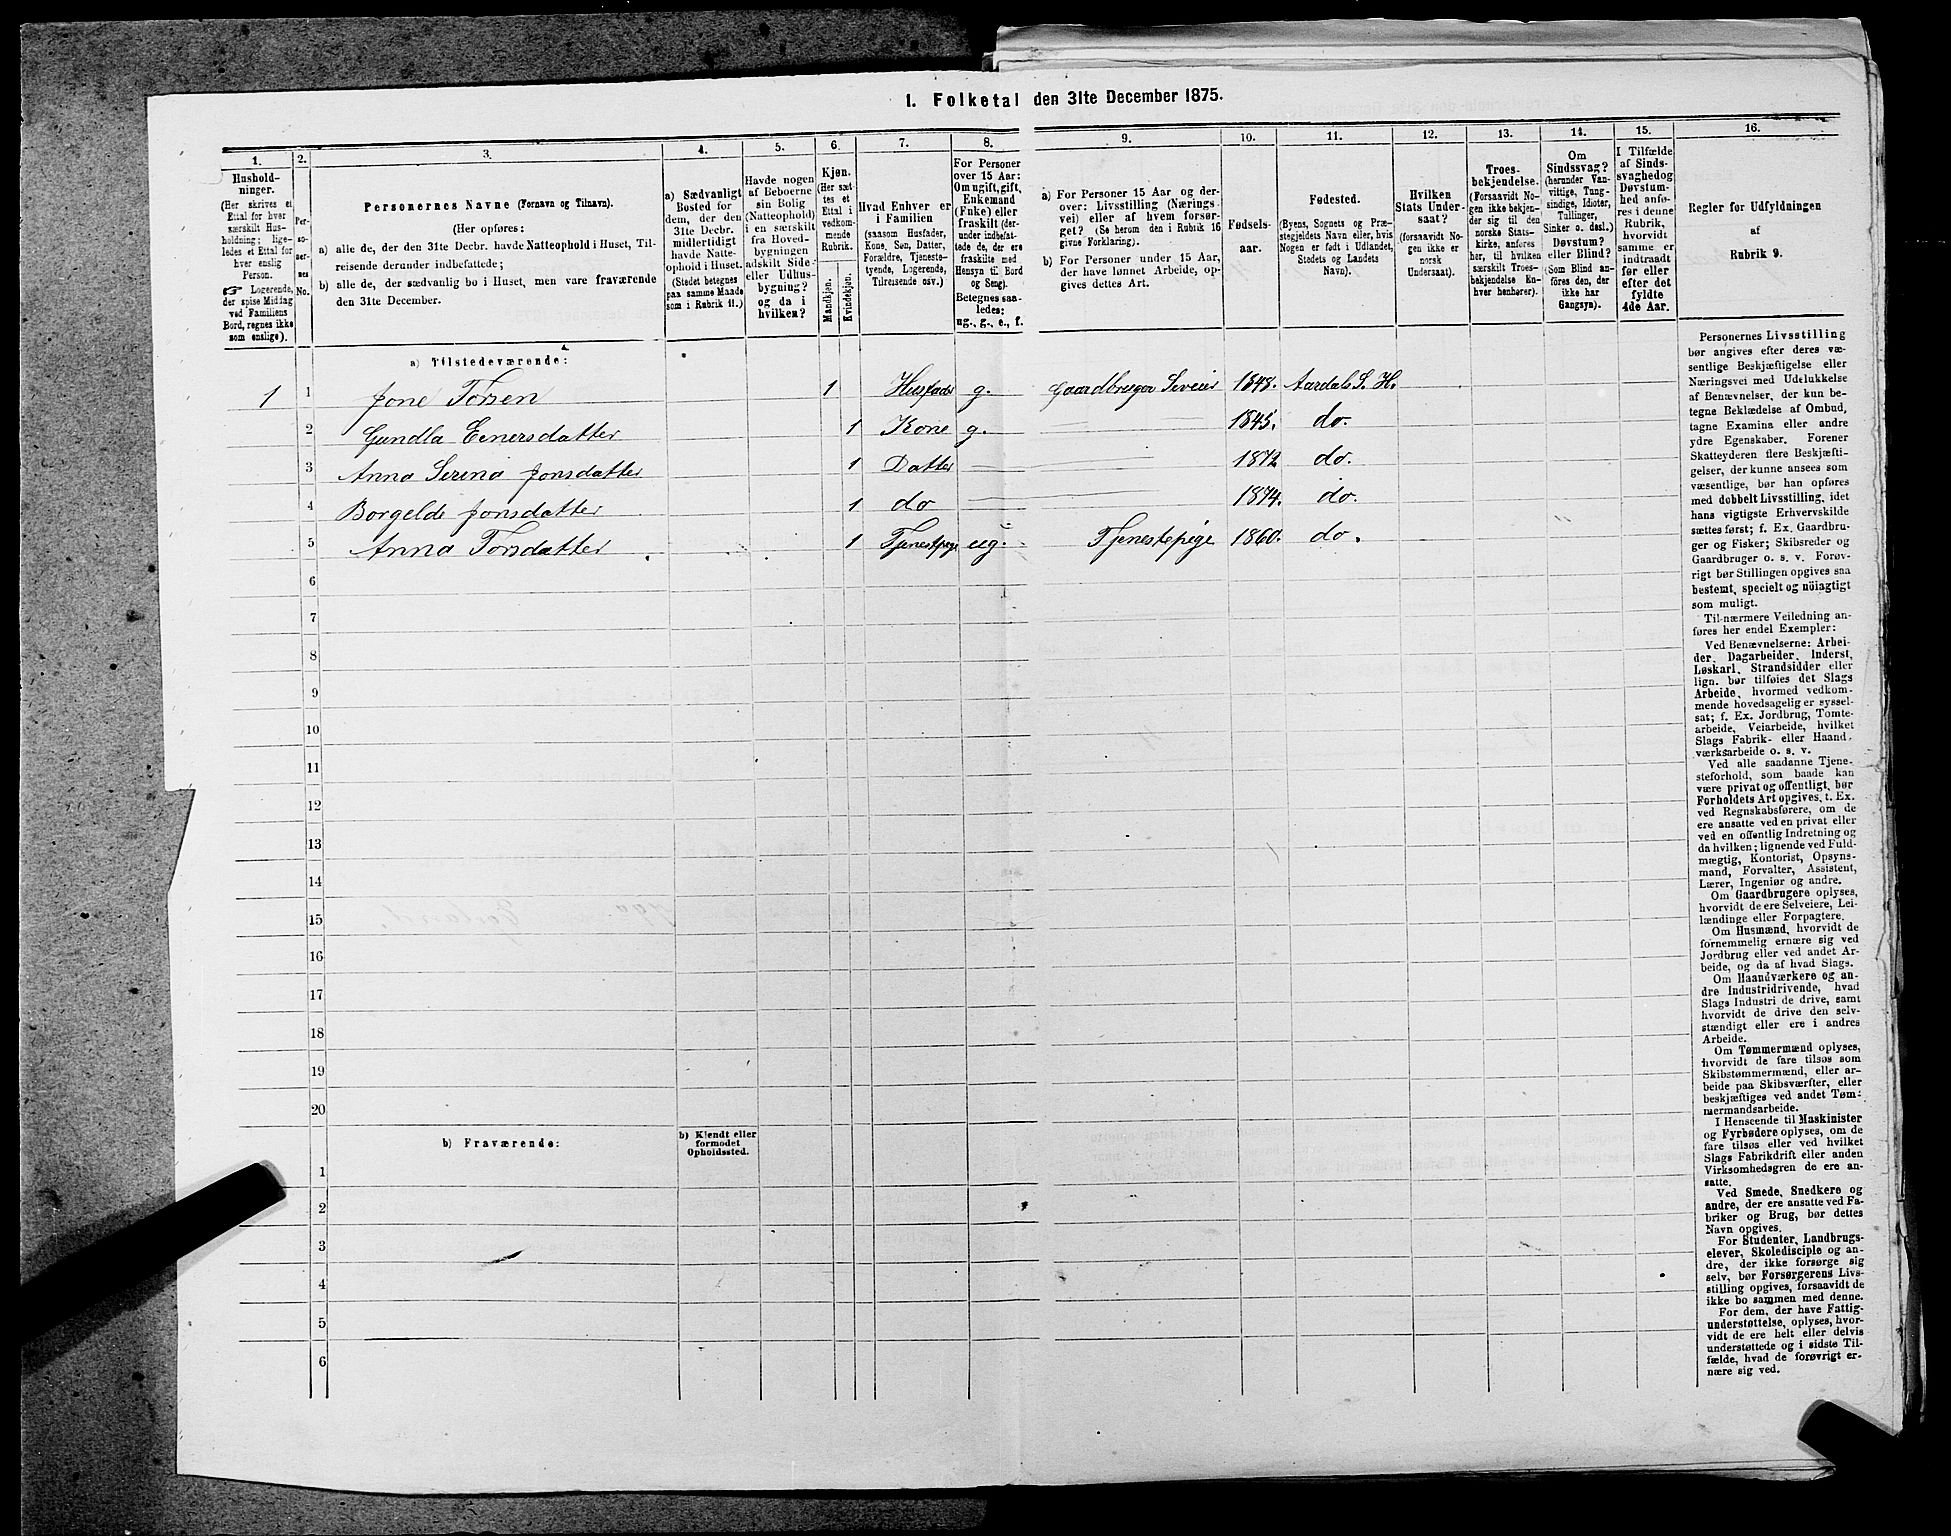 1. Folketal den 31te December 1875.
1.
2.
3.
4.
5.
6.
7.
8.
9.
10.
11.
12.
13.
14.
15.
16.
Husholdninger.
(Her skrives et
Ettal for hver
særskilt Husholdning;
ligeledes
et Ettal for
hver enslig
Person.
☞ Logerende,
der spise Middag
ved Familiens
Bord, regnes ikke
som enslige).
Personernes No.
Personernes Navne (Fornavn og Tilnavn).
(Her opføres:
a) alle de, der den 31te Decbr. havde Natteophold i Huset, Tilreisende
derunder indbefattede;
b) alle de, der sædvanlig bo i Huset, men vare fraværende
den 31te December.
a) Sædvanligt
Bosted for
dem, der den
31te Decbr.
midlertidigt
havde Natteophold
i Huset.
(Stedet betegnes
paa samme Maade
som i Rubrik 11.)
Havde nogen
af Beboerne
sin Bolig
(Natteophold)
i en særskilt
fra Hovedbygningen
adskilt Side-
eller Udhusbygning?
og da i
hvilken?
Kjøn.
(Her sættes
et
Ettal i
vedkommende
Rubrik.
Mandkjøn.
Kvindekjøn.
Hvad Enhver er
i Familien
(saasom Husfader,
Kone, Søn, Datter,
Forældre, Tjenestetyende,
Logerende,
Tilreisende osv.)
For Personer
over 15 Aar:
Om ugift, gift,
Enkemand
(Enke) eller
fraskilt (derunder
indbefattede
de, der ere
fraskilte med
Hensyn til Bord
og Seng).
Betegnes saaledes:
ug., g., e., f.
a) For Personer 15 Aar og derover:
Livsstilling (Næringsvei)
eller af hvem forsørget?
(Se herom den i Rubrik 16
givne Forklaring).
b) For Personer under 15 Aar,
der have lønnet Arbeide, opgives
dettes Art.
Fødselsaar.
Fødested.
(Byens, Sognets og Præstegjeldets
Navn eller, hvis
Nogen er født i Udlandet,
Stedets og Landets
Navn).
Hvilken
Stats Undersaat?
(forsaavidt Nogen
ikke er
norsk
Undersaat).
Troesbekjendelse.
(Forsaavidt Nogen
ikke bekjender
sig til den
norske Statskirke,
anføres
her, til hvilken
særskilt Troesbekjendelse
Enhver
henhører).
Om
Sindssvag?
(herunder Vanvittige,
Tungsindige,
Idioter,
Tullinger,
Sinker o. desl.)
Døvstum?
eller Blind?
(Som Blind anføres
den, der
ikke har
Gangsyn).
I Tilfælde
af Sindssvaghed
og
Døvstumhed
anføres
i denne
Rubrik,
hvorvidt
samme er
indtraadt
før eller
efter det
fyldte
4de Aar.
Regler for Udfyldningen
af
Rubrik 9.
a) Tilstedeværende:
1 1 Jone Torsen 1 Husfader g. Gaardbruger Selveier 1848. Aardals S. H.
2 Gundla Einersdatter 1 Kone g. 1845. do.
3 Anna Serina Jonsdatter 1 Datter 1872 do.
4 Borgelde Jonsdatter 1 do 1874. do.
5 Anna Torsdatter 1 Tjenestpige ug. Tjenestepige 1860. do.
6
7
8
9
10
11
12
13
14
15
16
17
18
19
20
b) Fraværende:
b) Kjendt eller
formodet
Opholdssted.
1
2
3
4
5
6
Personernes Livsstilling
bør angives efter deres væsentlige
Beskjæftigelse eller
Næringsvei med Udelukkelse
af Benævnelser, der kun betegne
Beklædelse af Ombud,
tagne Examina eller andre
ydre Egenskaber. Forener
Skatteyderen flere Beskjæftigelser,
der kunne ansees som
væsentlige, bør han opføres
med dobbelt Livsstilling, idet
hans vigtigste Erhvervskilde
sættes først; f. Ex. Gaardbruger
og Fisker; Skibsreder og
Gaardbruger o. s. v. Forøvrigt
bør Stillingen opgives saa
bestemt, specielt og nöiagtigt
som muligt.
Til nærmere Veiledning anføres
her endel Exempler:
Ved Benævnelserne: Arbeider,
Dagarbeider, Inderst,
Løskarl, Strandsidder eller
lign. bør tilføies det Slags
Arbeide, hvormed vedkommende
hovedsagelig er sysselsat;
f. Ex. Jordbrug, Tomtearbeide,
Veiarbeide, hvilket
Slags Fabrik- eller Haandværksarbeide
o. s. v.
Ved alle saadanne Tjenesteforhold,
som baade kan
være privat og offentligt, bør
Forholdets Art opgives, t. Ex.
ved Regnskabsførere, om de
ere ansatte ved en privat eller
ved en offentlig Indretning og
da hvilken; lignende ved Fuldmægtig,
Kontorist, Opsynsmand,
Forvalter, Assistent,
Lærer, Ingeniør og andre.
Om Gaardbrugere oplyses,
hvorvidt de ere Selveiere, Leilændinge
eller Forpagtere.
Om Husmænd, hvorvidt de
fornemmelig ernære sig ved
Jordbrug eller ved andet Arbeide,
og da af hvad Slags.
Om Haandværkere og andre
Industridrivende, hvad
Slags Industri de drive, samt
hvorvidt de drive den selvstændigt
eller ere i andres
Arbeide.
Om Tømmermænd oplyses,
hvorvidt de fare tilsøs som
Skibstømmermænd, eller arbeide
paa Skibsværfter, eller
beskjæftiges ved andet Tømmermandsarbeide.
I Henseende til Maskinister
og Fyrbødere oplyses, om de
fare tilsøs eller ved hvilket
Slags Fabrikdrift eller anden
Virksomhedsgren de ere ansatte.
Ved Smede, Snedkere og
andre, der ere ansatte ved Fabriker
og Brug, bør dettes
Navn opgives.
For Studenter, Landbrugselever,
Skoledisciple og andre,
der ikke forsørge sig
selv, bør Forsørgerens Livsstilling
opgives, forsaavidt de
ikke bo sammen med denne.
For dem, der have Fattigunderstøttelse,
oplyses, hvorvidt
de ere helt eller delvis
understøttede og i sidste Tilfælde,
hvad de forøvrigt ernære
sig ved.